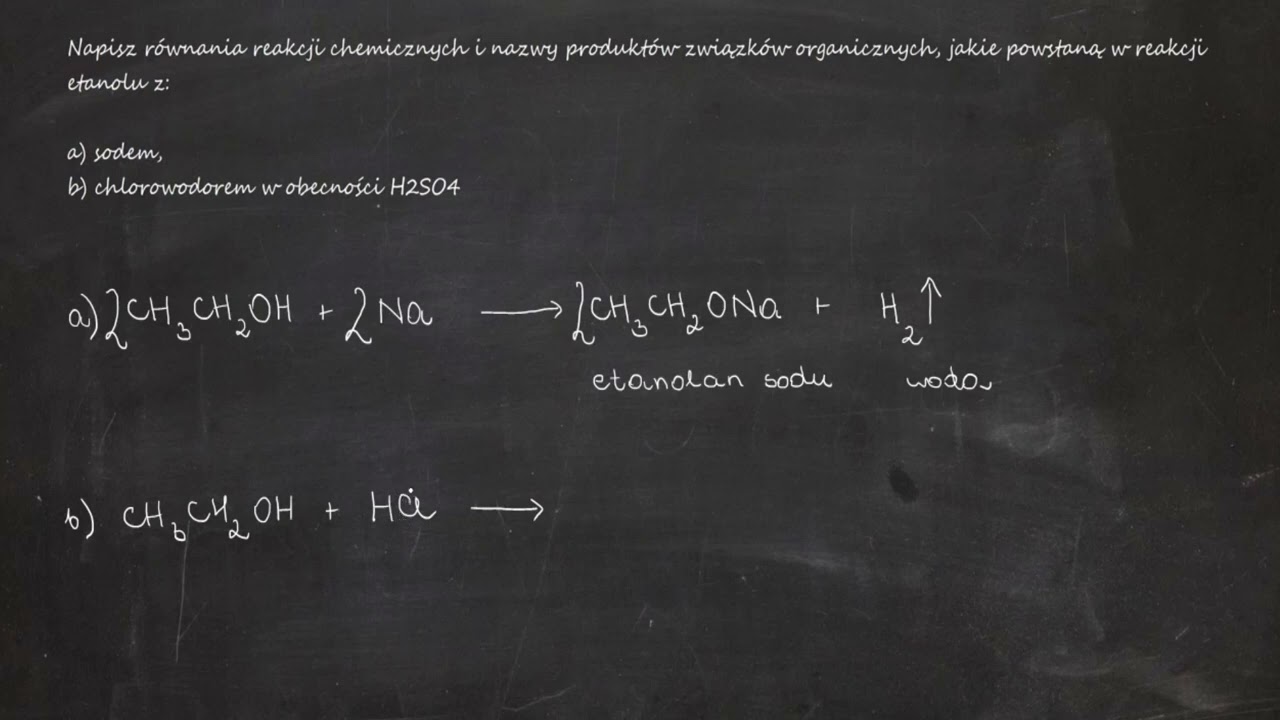 Napisz równania reakcji chemicznych i nazwy produktów związków organicznych, jakie powstaną w reakcji
etanolu z:
a) sodem,
b) chlorowodorem w obecności H2SO4
a) 2CH₃CH₂OH + 2Na → 2CH₃CH₂ONa + H₂↑
etanolan sodu woda
b) CH₃CH₂OH + HCl →